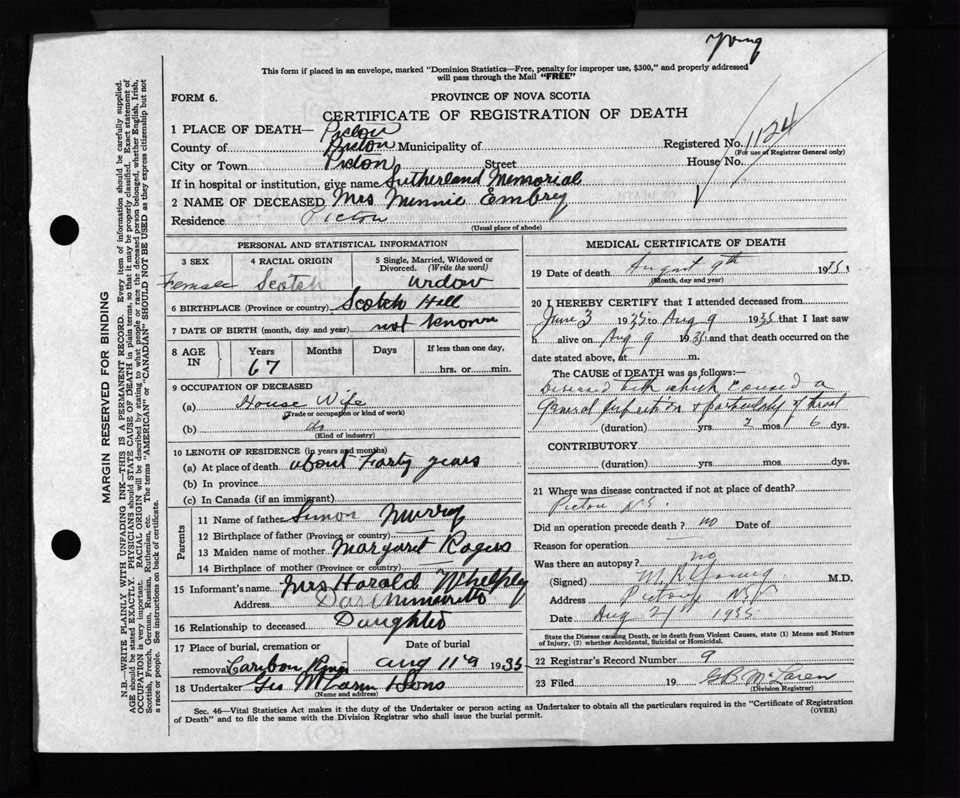 Young
This form if placed in an envelope, marked "Dominion Statistics—Free, penalty for improper use, $300," and properly addressed
will pass through the Mail "FREE"
FORM 6.
PROVINCE OF NOVA SCOTIA
CERTIFICATE OF REGISTRATION OF DEATH
1 PLACE OF DEATH— Pictou
County of Pictou Municipality of Registered No. 1124
(For use of Registrar General only)
City or Town Pictou Street House No.
If in hospital or institution, give name Sutherland Memorial
2 NAME OF DECEASED Mrs Minnie Embry
Residence Pictou
(Usual place of abode)
PERSONAL AND STATISTICAL INFORMATION
3 SEX 4 RACIAL ORIGIN 5 Single, Married, Widowed or
Divorced. (Write the word)
Female Scotch Widow
6 BIRTHPLACE (Province or country) Scotch Hill
7 DATE OF BIRTH (month, day and year) not known
8 AGE IN Years Months Days If less than one day,
67 hrs. or min.
9 OCCUPATION OF DECEASED
(a) House Wife
(Trade or occupation or kind of work)
(b) do
(Kind of industry)
10 LENGTH OF RESIDENCE (in years and months)
(a) At place of death about Forty years
(b) In province
(c) In Canada (if an immigrant)
Parents
11 Name of father Simon Murray
12 Birthplace of father (Province or country)
13 Maiden name of mother Margaret Rogers
14 Birthplace of mother (Province or country)
15 Informant's name Mrs Harold Whelpley
Address
16 Relationship to deceased Daughter
17 Place of burial, cremation or Date of burial
removal Caribou Aug 11 1935
18 Undertaker Geo & Sons
(Name and address)
MEDICAL CERTIFICATE OF DEATH
19 Date of death August 9th 1935
(Month, day and year)
20 I HEREBY CERTIFY that I attended deceased from
June 3 1935 to Aug 9 1935 that I last saw
h alive on Aug 9 1935 and that death occurred on the
date stated above, at m.
The CAUSE OF DEATH was as follows:—
Diseased teeth which caused a
General Infection & particularly of throat
(duration) yrs. 2 mos. 6 dys.
CONTRIBUTORY
(duration) yrs. mos. dys.
21 Where was disease contracted if not at place of death?
Pictou N.S.
Did an operation precede death? no Date of
Reason for operation
Was there an autopsy? no
(Signed) Young M.D.
Address Pictou NS
Date Aug 21 1935
State the Disease causing Death, or in death from Violent Causes, state (1) Means and Nature
of Injury, (2) whether Accidental, Suicidal or Homicidal.
22 Registrar's Record Number 9
23 Filed 19 GB McLaren
(Division Registrar)
Sec. 46—Vital Statistics Act makes it the duty of the Undertaker or person acting as Undertaker to obtain all the particulars required in the "Certificate of Registration
of Death" and to file the same with the Division Registrar who shall issue the burial permit. (OVER)
MARGIN RESERVED FOR BINDING
N.B.—WRITE PLAINLY WITH UNFADING INK—THIS IS A PERMANENT RECORD. Every item of information should be carefully supplied.
AGE should be stated EXACTLY. PHYSICIANS should STATE CAUSE OF DEATH in plain terms, so that it may be properly classified. Exact statement of
OCCUPATION is very important. RACIAL ORIGIN will be described by stating to what people or race the deceased person belonged, whether English, Irish,
Scottish, French, German, Russian, Ruthenian, etc. The terms "AMERICAN" or "CANADIAN" SHOULD NOT BE USED as they express citizenship but not
a race or people. See instructions on back of certificate.